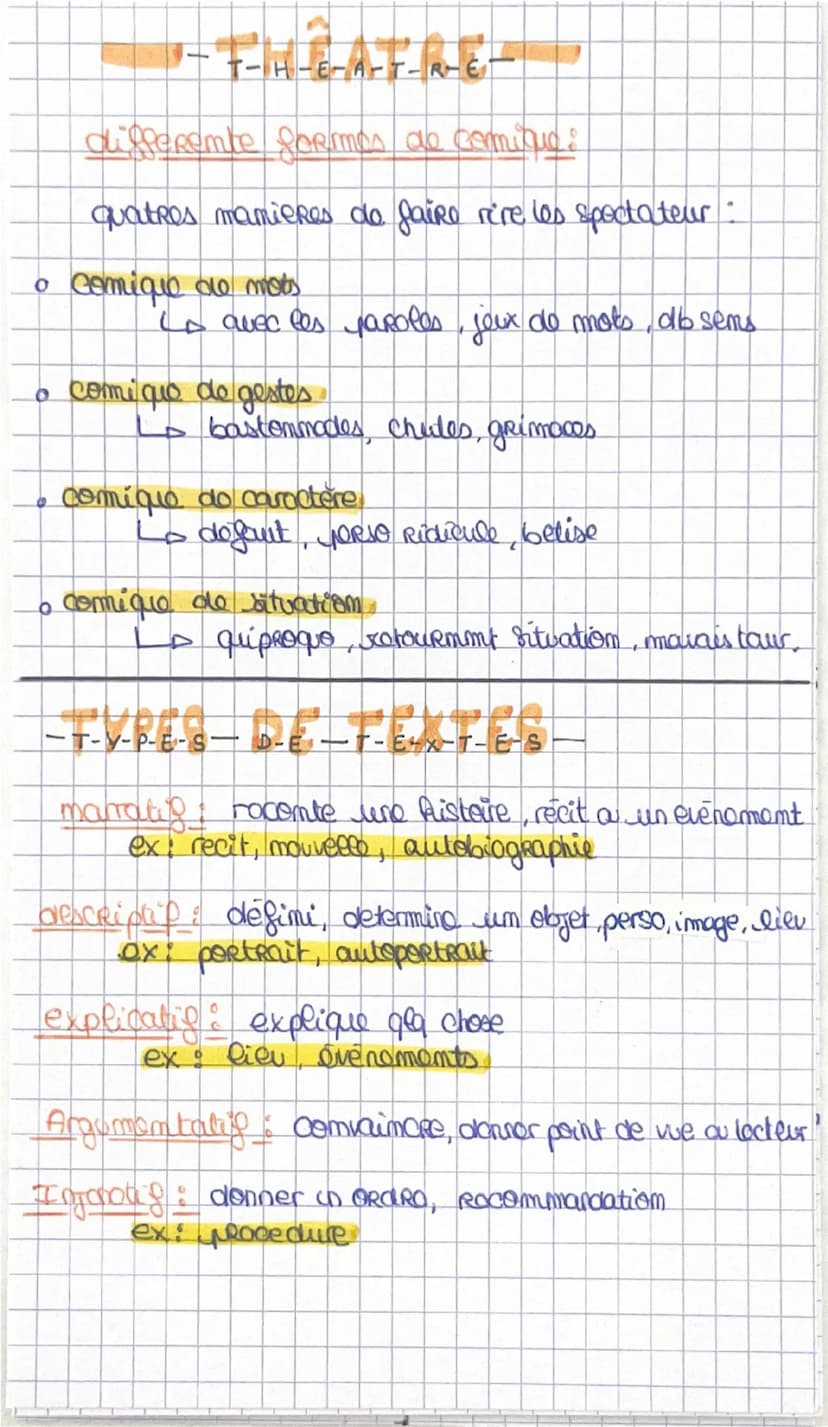 - T-H-E-A-T-R-E -
differente formes de comique :
quatres manieres de faire rire les spectateur :
o comique de mots
↳ avec les paroles, jeux de mots, db sens
o comique de gestes
↳ bastonnades, chutes, grimaces
o comique de caractère
↳ défaut, perso ridicule, betise
o comique de situation
↳ quiproquo, situation,
- T-Y-P-E-S - D-E - T-E-X-T-E-S -
narratif : raconte une histoire, récit a un evénement
ex : recit, nouvelle, autobiographie
descriptif : défini, determine un objet, perso, image, lieu
ex : portrait, autoportrait
explicatif : explique qlq chose
ex : lieu, événements
Argumentatif : convaincre, donner point de vue au lecteur
Injonctif : donner un ordre, recommandation
ex : procedure